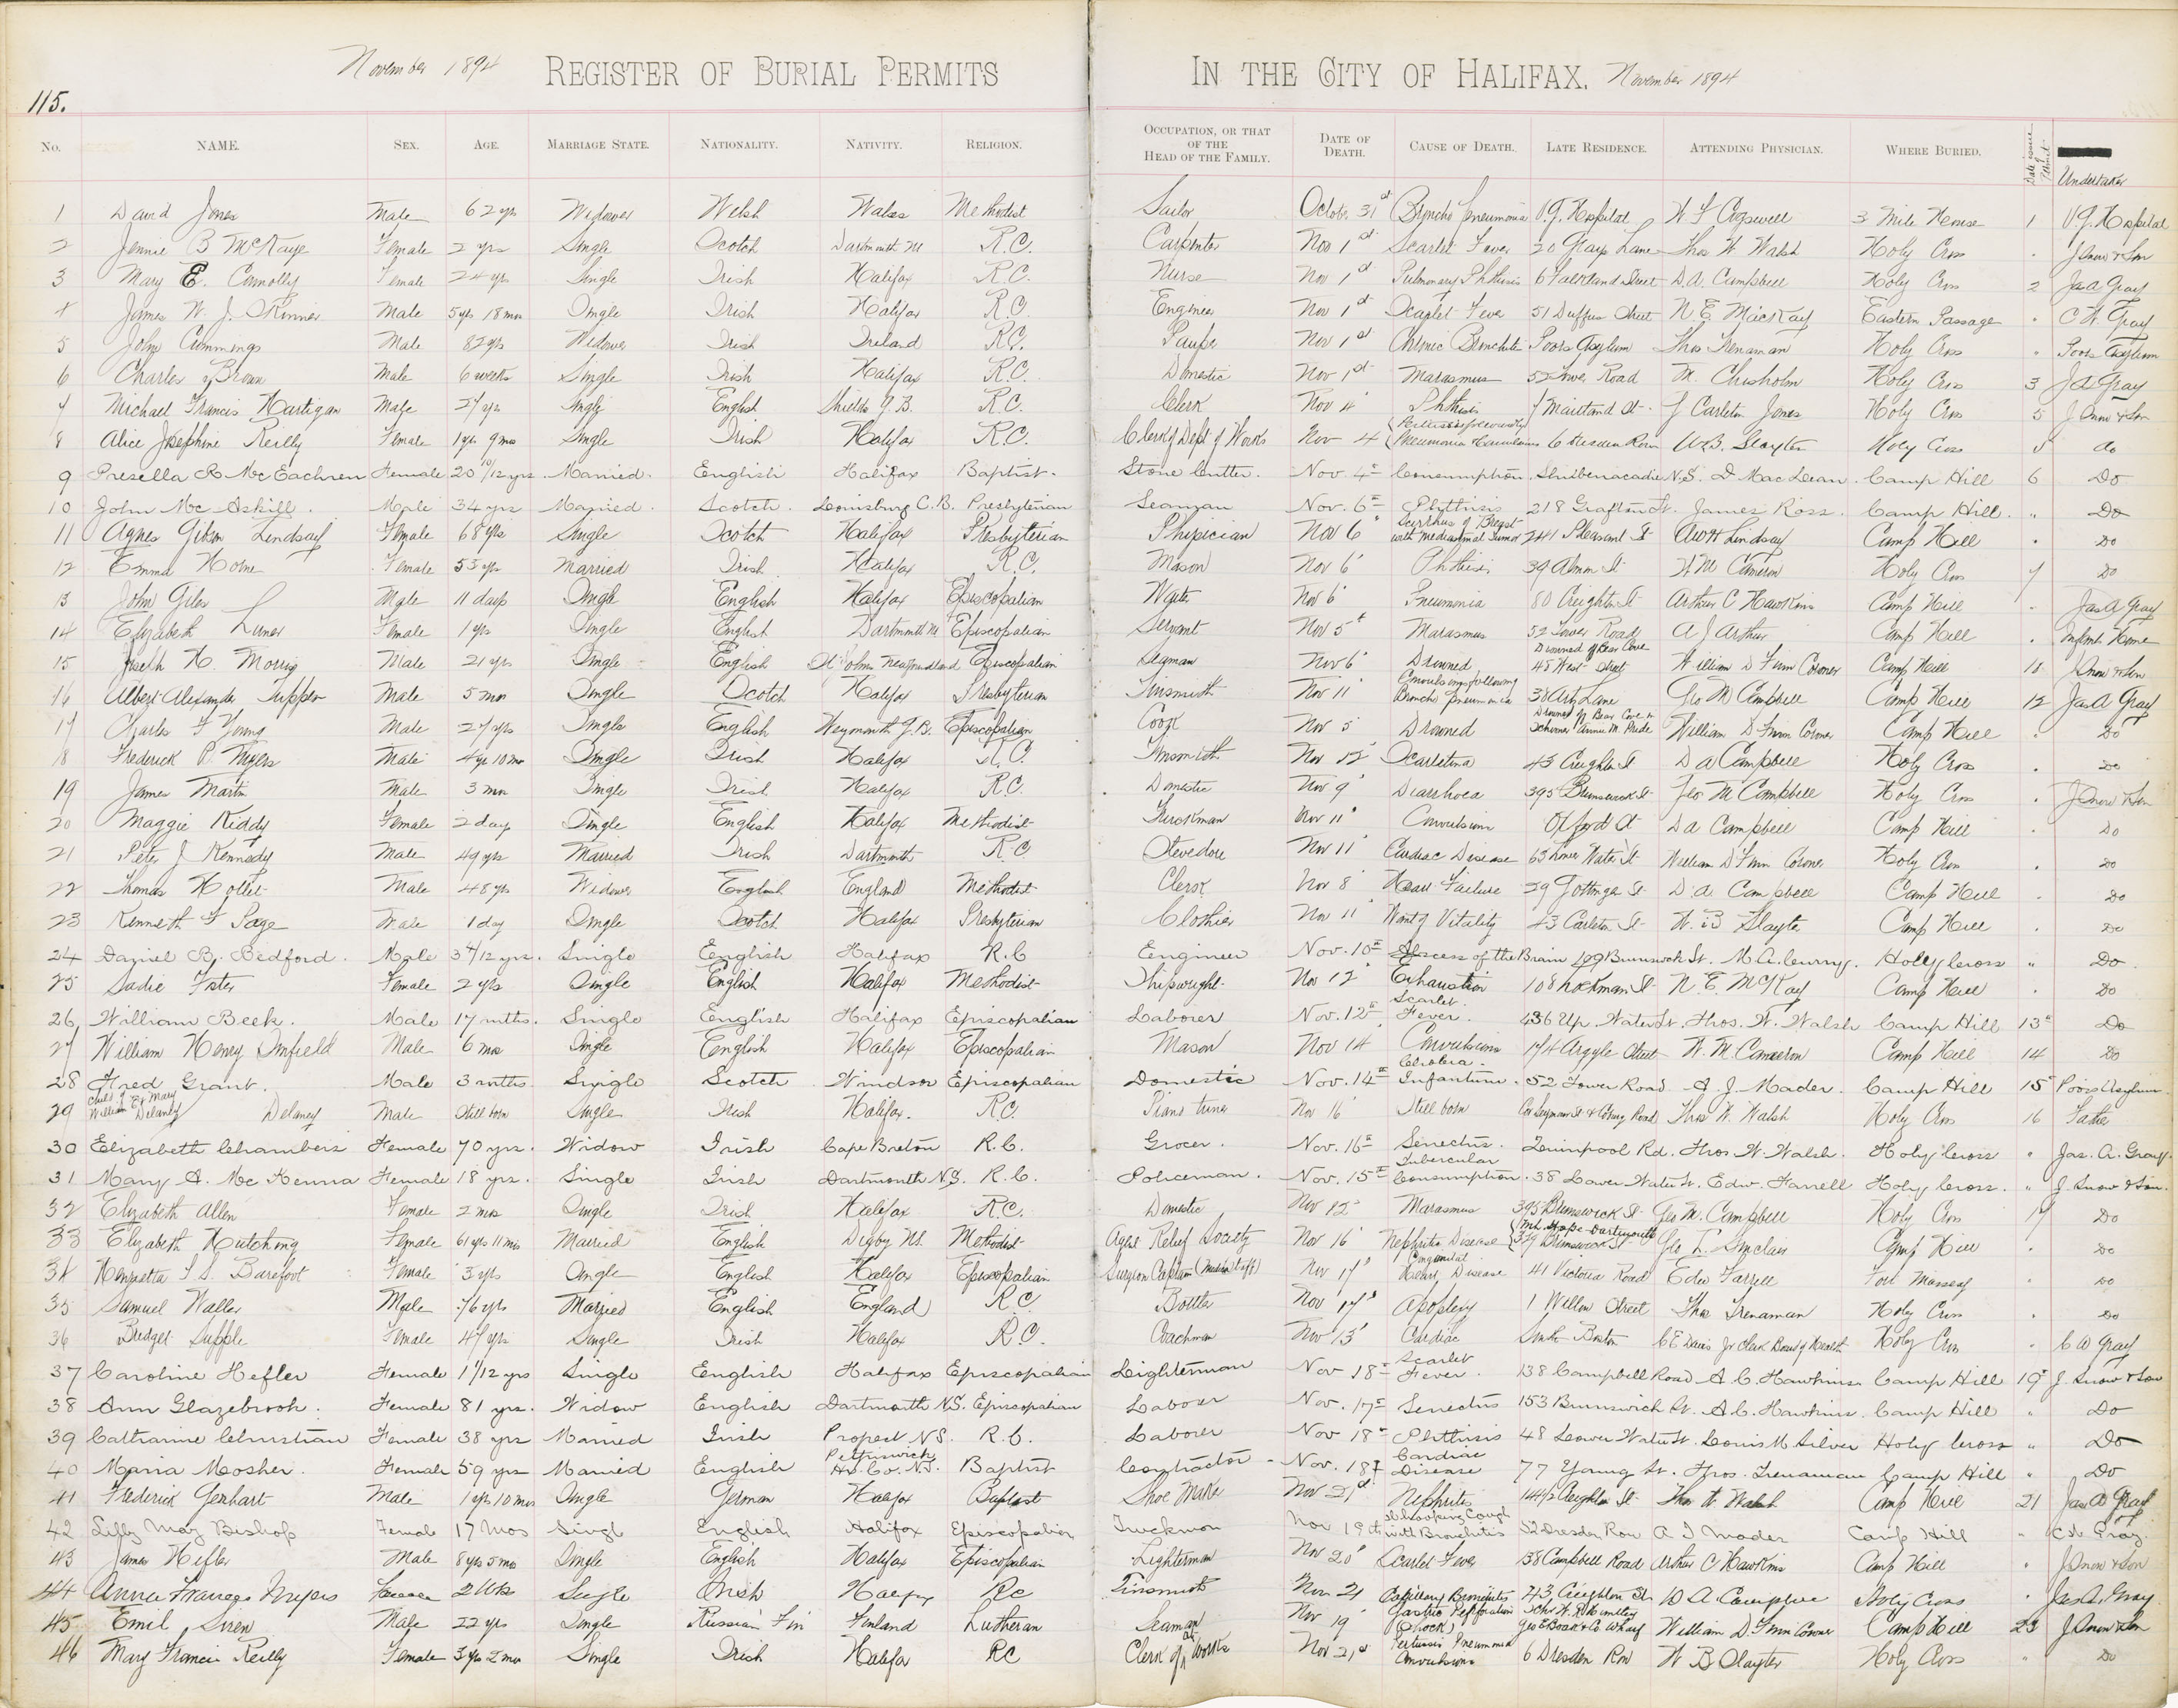 November 1894 REGISTER OF BURIAL PERMITS IN THE CITY OF HALIFAX. November 1894
115.
No. NAME. SEX. AGE. MARRIAGE STATE. NATIONALITY. NATIVITY. RELIGION. OCCUPATION, OR THAT OF THE HEAD OF THE FAMILY. DATE OF DEATH. CAUSE OF DEATH. LATE RESIDENCE. ATTENDING PHYSICIAN. WHERE BURIED. Date issue Permit. Undertaker
1 David Jones Male 62 yrs Widower Welsh Wales Methodist Sailor Octobr 31st Broncho pneumonia V.G. Hospital W F Cogswell 3 Mile House 1 V.G. Hospital
2 Jennie B McKaye Female 2 yrs Single Scotch Dartmouth R.C. Carpenter Nov 1st Scarlet Fever 20 Grays Lane Thos W. Walsh Holy Cross " J Snow & Son
3 Mary E. Connolly Female 24 yrs Single Irish Halifax R.C. Nurse Nov 1st Pulmonary Phthisis 6 Falkland Street D.A. Campbell Holy Cross 2 Jas A Gray
4 James W. J. Skinner Male 5 yrs 18 mos Single Irish Halifax R.C. Engineer Nov 1st Scarlet Fever 51 Duffus Street N. E. MacKay Eastern Passage " C W. Gray
5 John Cummings Male 82 yrs Widower Irish Ireland R.C. Pauper Nov 1st Chronic Bronchitis Poors Asylum Thos Trenaman Holy Cross " Poors Asylum
6 Charles Brown Male 6 weeks Single Irish Halifax R.C. Domestic Nov 1st Marasmus 52 Tower Road M. Chisholm Holy Cross 3 J A Gray
7 Michael Francis Hartigan Male 27 yrs Single English Shields G.B. R.C. Clerk Nov 4 Phthisis 7 Maitland St. J Carleton Jones Holy Cross 5 J Snow & Son
8 Alice Josephine Reilly Female 1 yr 9 mos Single Irish Halifax R.C. Clerk of Dept of Works Nov 4 Pneumonia 6 Dresden Row W.B. Slayter Holy Cross 5 do
9 Presella R McEachren Female 20 10/12 yrs. Married. English Halifax Baptist. Stone Cutter. Nov. 4th Consumption. Shubenacadie N.S. D MacLean. Camp Hill 6 Do
10 John McAskill. Male 34 yrs Married. Scotch. Louisburg C.B. Presbyterian Seaman Nov. 6th Phthisis 218 Grafton St. James Ross. Camp Hill. " Do
11 Agnes Gibson Lindsay Female 68 yrs Single Scotch Halifax Presbyterian Phisician Nov 6 Scirrhus of Breast with mediastinal Tumor 241 Pleasant St A W H Lindsay Camp Hill " Do
12 Emma Horne Female 53 yrs Married Irish Halifax R.C. Mason Nov 6 Phthisis 39 Almon St W M Cameron Holy Cross 7 Do
13 John Giles Male 11 days Single English Halifax Episcopalian Waiter Nov 6 Pneumonia 80 Creighton St Arthur C Hawkins Camp Hill " Jas A Gray
14 Elizabeth Turner Female 1 yr Single English Dartmouth Episcopalian Servant Nov 5th Marasmus 52 Tower Road A J Arthur Camp Hill " Infants Home
15 Joseph H. Morris Male 21 yrs Single English St Johns Newfoundland Episcopalian Seaman Nov 6 Drowned Drowned off Bear Cove 48 West Street William D Finn Coroner Camp Hill 10 J Snow & Son
16 Albert Alexander Tupper Male 5 mos Single Scotch Halifax Presbyterian Tinsmith Nov 11 Convulsions following Broncho pneumonia 38 Artz Lane Geo M Campbell Camp Hill 12 Jas A Gray
17 Charles F Young Male 27 yrs Single English Weymouth G.B. Episcopalian Cook Nov 5 Drowned Drowned off Bear Cove in Schooner Annie M. Pride William D Finn Coroner Camp Hill " Do
18 Frederick P. Myers Male 4 yrs 10 mos Single Irish Halifax R.C. Tinsmith Nov 12 Scarletina 43 Creighton St D A Campbell Holy Cross " Do
19 James Martin Male 3 mos Single Irish Halifax R.C. Domestic Nov 9 Diarrhoea 395 Brunswick St Geo M Campbell Holy Cross " J Snow & Son
20 Maggie Kiddy Female 2 days Single English Halifax Methodist Truckman Nov 11 Convulsions Oxford St D A Campbell Camp Hill " Do
21 Peter J Kennedy Male 49 yrs Married Irish Dartmouth R.C. Stevedore Nov 11 Cardiac Disease 63 Lower Water St William D Finn Coroner Holy Cross " Do
22 Thomas Hollet Male 48 yrs Widower English England Methodist Clerk Nov 8 Heart Failure 29 Gottingen St D.A. Campbell Camp Hill " Do
23 Kenneth F Page Male 1 day Single Scotch Halifax Presbyterian Clothier Nov 11 Want of Vitality 43 Carleton St W. B Slayter Camp Hill " Do
24 Daniel B. Bedford. Male 3 4/12 yrs. Single English Halifax R.C Engineer Nov. 10th Abscess of the Brain 109 Brunswick St. M.A. Curry. Holy Cross " Do
25 Sadie Foster Female 2 yrs Single English Halifax Methodist Shipwright Nov 12 Exhaustion 108 Lockman St N. E. McKay Camp Hill " Do
26 William Beek. Male 17 mths. Single English Halifax Episcopalian Laborer Nov. 12th Scarlet Fever. 436 Up. Water St. Thos. W. Walsh Camp Hill 13th Do
27 William Henry Infield Male 6 mos Single English Halifax Episcopalian Mason Nov 14 Convulsions 174 Argyle Street W. M. Cameron Camp Hill 14 Do
28 Fred Grant. Male 3 mths. Single Scotch Windsor Episcopalian Domestic Nov. 14th Cholera Infantum. 52 Tower Road A. J. Mader. Camp Hill 15th Poors Asylum
29 Child of William & Mary Delaney Delaney Male Still born Single Irish Halifax. R.C. Piano tuner Nov 16 Still born Cor Seymour St & Coburg Road Thos W. Walsh Holy Cross 16 Father
30 Elizabeth Chambers Female 70 yrs. Widow Irish Cape Breton R.C. Grocer. Nov. 16th Senectus. Quinpool Rd. Thos. W. Walsh. Holy Cross " Jas. A. Gray.
31 Mary A. McKenna Female 18 yrs. Single Irish Dartmouth N.S. R.C. Policeman. Nov. 15th Tubercular Consumption. 38 Lower Water St. Edw. Farrell Holy Cross. " J. Snow & Son.
32 Elizabeth Allen Female 2 mos Single Irish Halifax R.C. Domestic Nov 12 Marasmus 395 Brunswick St Geo M. Campbell Holy Cross 17 Do
33 Elizabeth Hutchings Female 61 yrs 11 mos Married English Digby Methodist Agent Relief Society Nov 16 Nephritis Disease Mt. Hope Dartmouth 379 Brunswick St Geo L Sinclair Camp Hill " Do
34 Henrietta S. Barefoot Female 3 yrs Single English Halifax Episcopalian Surgeon Captain (Medical Staff) Nov 17 Congenital Heart Disease 41 Victoria Road Edw Farrell Fort Massey " Do
35 Samuel Waller Male 76 yrs Married English England R.C. Bottler Nov 17 Apoplexy 1 Willow Street Thos Trenaman Holy Cross " Do
36 Bridget Supple Female 47 yrs Single Irish Halifax R.C. Coachman Nov 13 Cardiac South Boston C E Davis Jr Clerk Board of Health Holy Cross " C W Gray
37 Caroline Hefler Female 1 1/12 yrs Single English Halifax Episcopalian Lighterman Nov 18th Scarlet Fever. 138 Campbell Road A. C. Hawkins Camp Hill 19th J. Snow & Son
38 Ann Glazebrook. Female 81 yrs. Widow English Dartmouth N.S. Episcopalian Labour Nov. 17th Senectus 153 Brunswick St. A.C. Hawkins. Camp Hill " Do
39 Catharine Christian Female 38 yrs Married Irish Prospect N.S. R.C. Laborer Nov 18th Phthisis 48 Lower Water St. Louis M. Silver Holy Cross " Do
40 Maria Mosher. Female 59 yrs Married English Petpiswick Hx. Co. N.S. Baptist Contractor Nov. 18th Cardiac Disease 77 Young St. Thos. Trenaman Camp Hill " Do
41 Frederick Genhart Male 1 yr 10 mos Single German Halifax Baptist Shoe Maker Nov 21st Nephritis 144½ Creighton St Thos W. Walsh Camp Hill 21 Jas A Gray
42 Lilly May Bishop Female 17 Mos Singl English Halifax Episcopalian Truckmon Nov 19th Whooping Cough with Bronchitis 52 Dresden Row A I Mader Camp Hill " C W. Gray
43 James Hefler Male 8 yrs 5 mos Single English Halifax Episcopalian Lighterman Nov 20 Scarlet Fever 138 Campbell Road Arthur C Hawkins Camp Hill " J Snow & Son
44 Anna Frances Myers Female 2 Wks Single Irish Halifax Rc Tinsmith Nov 21 Capillary Bronchitis 43 Creighton St D A. Campbell Holy Cross " Jas A. Gray
45 Emil Siren Male 22 yrs Single Russian Fin Finland Lutheran Seaman Nov 19 Gastric Perforation (Shock) Geo E Boak & Co Wharf William D. Finn Coroner Camp Hill 23 J Snow & Son
46 Mary Francis Reilly Female 3 yrs 2 mos Single Irish Halifax RC Clerk of Works Nov 21st Pertussis Pneumonia Convulsions 6 Dresden Row W B Slayter Holy Cross " Do